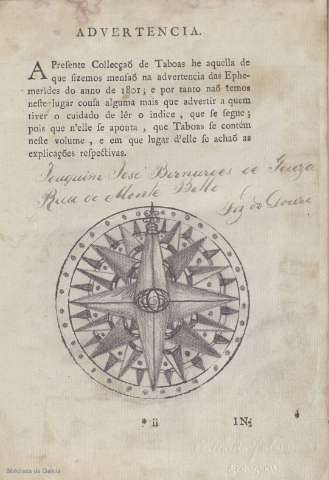 ADVERTENCIA.
A Presente Collecçaõ de Taboas he aquella de
que fizemos mensaõ na advertencia das Ephe-
merides do anno de 1801; e por tanto naõ temos
neste lugar cousa alguma mais que advertir a quem
tiver o cuidado de lêr o indice, que se segue;
pois que n'elle se aponta, que Taboas se contém
neste volume, e em que lugar d'elle se achaõ as
explicações respectivas.
Joaquim José Bernardes de Souza
Rua de Monte Bello
Foz do Douro
* ii
IN-
Biblioteca de Galicia